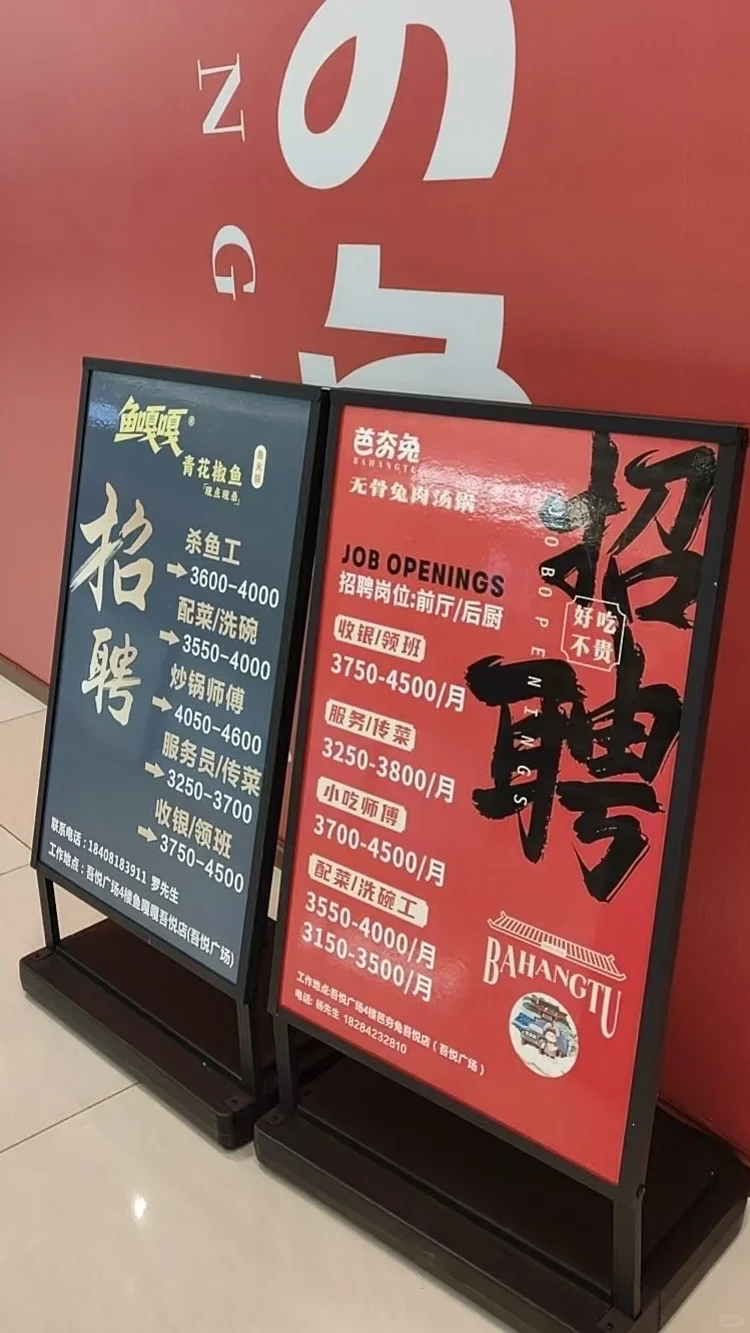 N
G
鱼嘎嘎®
青花椒鱼
「现点现杀」
招聘
杀鱼工
3600-4000
配菜/洗碗
3550-4000
炒锅师傅
4050-4600
服务员/传菜
3250-3700
收银/领班
3750-4500
联系电话：18408183911 罗先生
工作地点：吾悦广场4楼鱼嘎嘎吾悦店(吾悦广场)
芭夯兔
BAHANGTU
无骨兔肉汤锅
招聘
JOB OPENINGS
好吃
不贵
JOB OPENINGS
招聘岗位:前厅/后厨
收银/领班
3750-4500/月
服务/传菜
3250-3800/月
小吃师傅
3700-4500/月
配菜/洗碗工
3550-4000/月
3150-3500/月
BAHANGTU
工作地点:吾悦广场4楼芭夯兔吾悦店（吾悦广场）
电话: 杨先生 18284232810